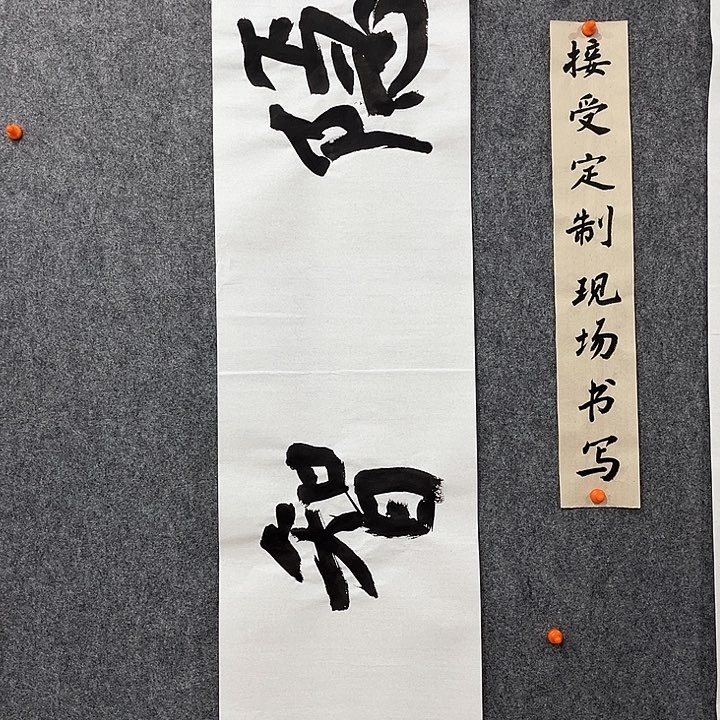 接受定制现场书写
智